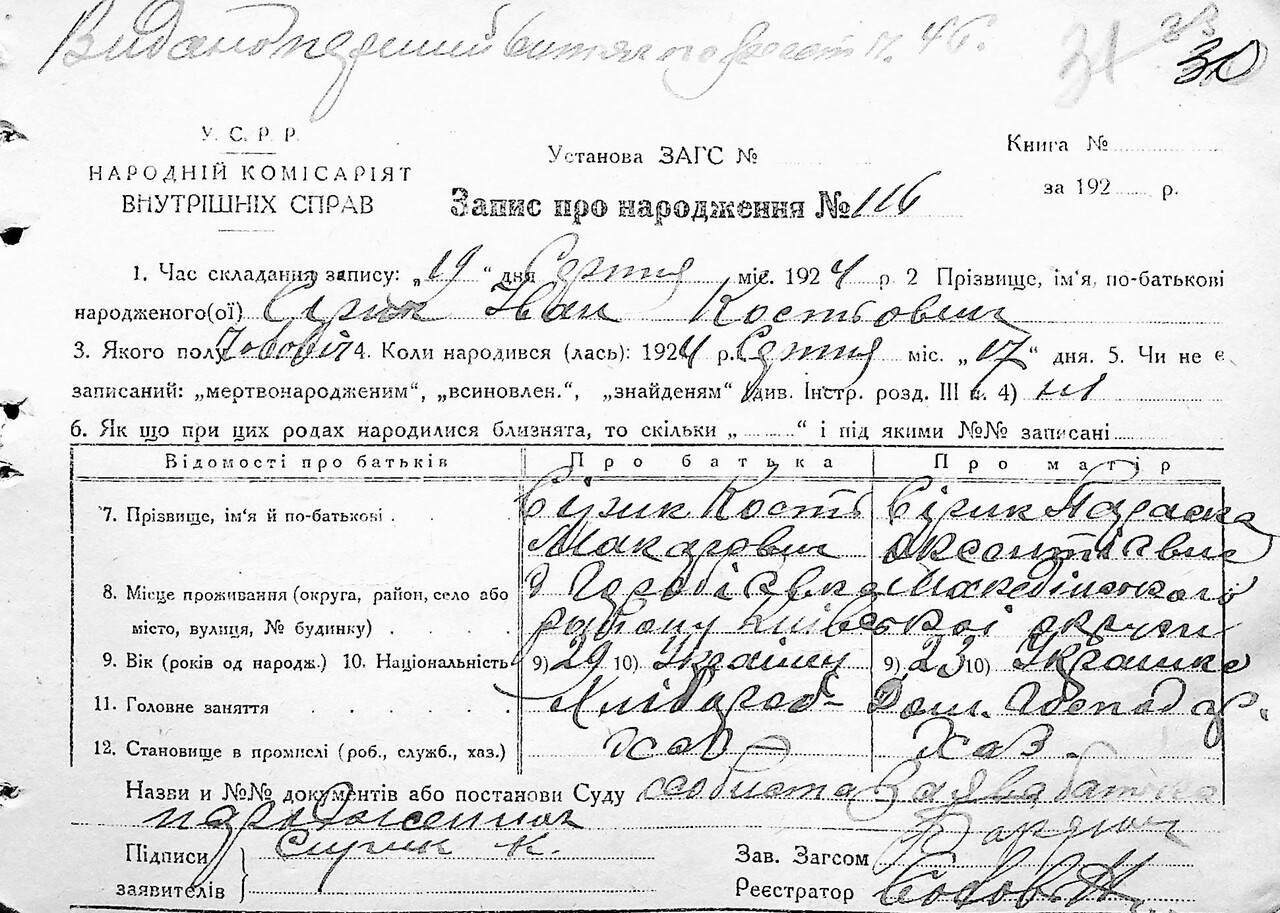 Видано перший витяг по реєст п. 46.
31 33 30
У. С. Р. Р.
НАРОДНІЙ КОМІСАРІЯТ
ВНУТРІШНІХ СПРАВ
Установа ЗАГС №
Книга №
за 192 р.
Запис про народження № 116
1. Час складання запису: „19“ дня Серпня міс. 1924 р. 2 Прізвище, ім‘я, по-батькові
народженого(ої) Сірик Іван Костьович
3. Якого полу Чоловіч 4. Коли народився (лась): 1924 р. Серпня міс. „17“ дня. 5. Чи не є
записаний: „мертвонародженим“, „всиновлен.“, „знайденям“ (див. Інстр. розд. III п. 4) ні
6. Як що при цих родах народилися близнята, то скільки „ “ і під якими №№ записані
Відомості про батьків Про батька Про матір
7. Прізвище, ім‘я й по-батькові Сірик Кость Сірик Параска
Макарович Оксентієвна
8. Місце проживання (округа, район, село або
місто, вулиця, № будинку) району Київської округи
9. Вік (років од народж.) 10. Національність 9) 29 10) Україну 9) 23 10) Українка
11. Головне заняття Хлібороб Дом. Господар.
12. Становище в промислі (роб., служб., хаз.) Хаз Хаз.
Назви и №№ документів або постанови Суду особиста заява батька
народження
Підписи Сирик К.
заявителів
Зав. Загсом
Реєстратор